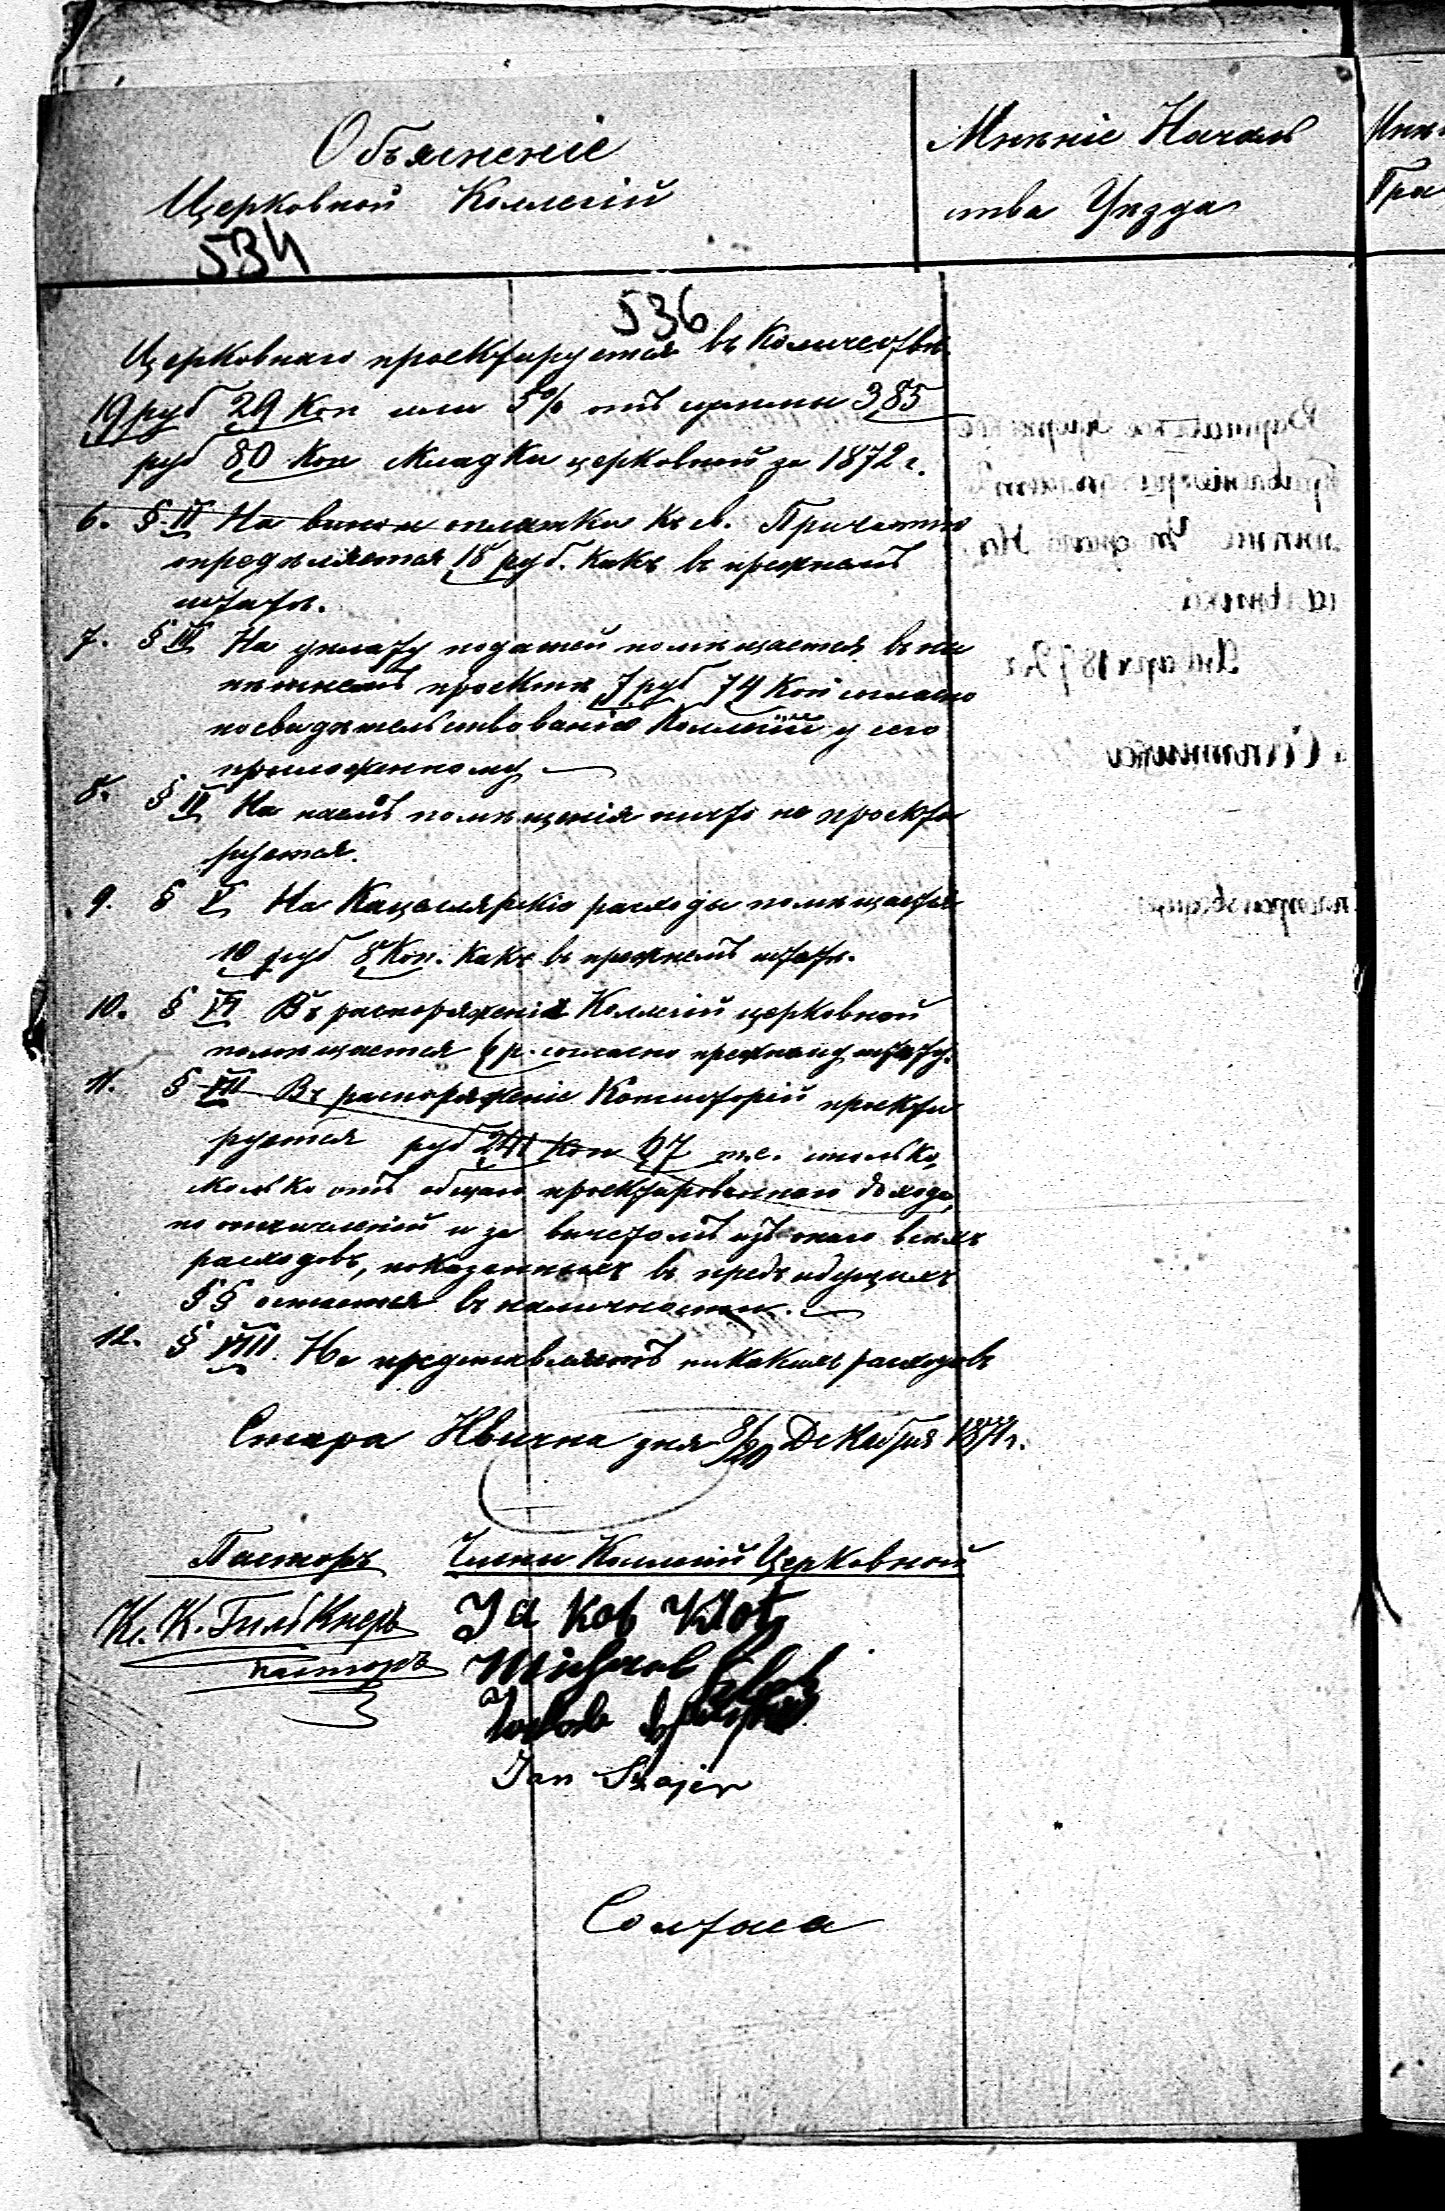 Объясненіе
Церковной Коллегіи
534
Мнѣніе Началь
ства Уѣзда
536
Церковнаго проектируется въ количествѣ
19 руб 29 коп или 5% отъ суммы 385
руб 80 коп складки церковной за 1872 г.
6. § II На вино и оплатки къ св. Причастію
опредѣляется 18 руб. какъ въ прежнемъ
штатѣ.
7. § III На уплату податей помѣщается въ ны
нѣшнемъ проектѣ 7 руб 74 коп согласно
посвидѣтельствованію Коллегіи у сего
приложенному
8. § IV На наемъ помѣщенія ничто не проекти
руется.
9. § V На Канцелярскіе расходы помѣщается
10 руб 8 коп. какъ въ прежнемъ штатѣ.
10. § VI Въ распоряженіе Коллегіи церковной
помѣщается 6 р. согласно прежнему штату.
11. § VII Въ распоряженіе Консисторіи проекти
руется руб 241 коп 67 т.е. столько,
сколько отъ общаго проектированнаго дохода,
по отчисленіи и за вычетомъ изъ онаго всѣхъ
расходовъ, показанныхъ въ предъидущихъ
§§ остается въ наличности.
12. § VIII. Не представляетъ никакихъ расходовъ
Стара Ивична дня 8/20 Декабря 1871 г.
Пасторъ Члены Коллегіи Церковной
К. К. Гилбкнеръ Jakob Klotz
пасторъ Michael
Jakob
Jan Szajer